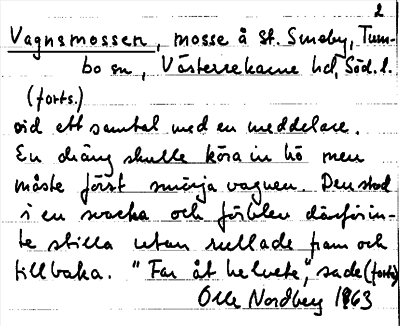 2
Vagnsmossen, mosse å St. Sundby, Tum-
bo sn, Västerrekarne hd, Söd. l.
(forts.)
vid ett samtal med en meddelare.
En dräng skulle köra in hö men
måste först smörja vagnen. Den stod
i en svacka och förblev därförin-
te stilla utan rullade fram och
tillbaka. "Far åt helvete", sade (forts)
Olle Nordberg 1963